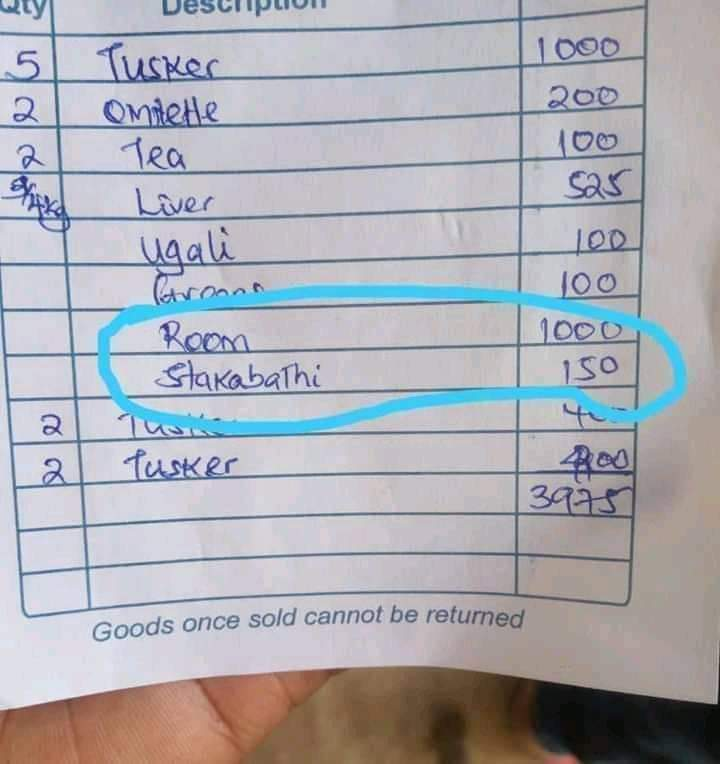 Qty Description
5 Tusker 1000
2 Omlette 200
2 Tea 100
Liver 525
Ugali 100
Greens 100
Room 1000
Stakabathi 150
2 Tusker 400
2 Tusker 400
3975
Goods once sold cannot be returned